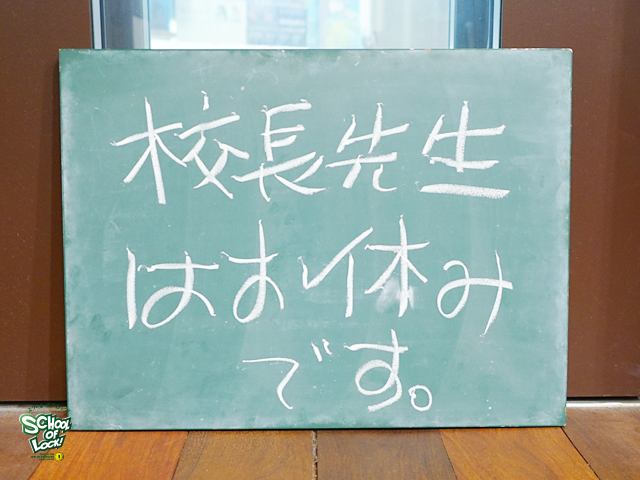 校長先生
はお休み
です。
SCHOOL
OF
LOCK!